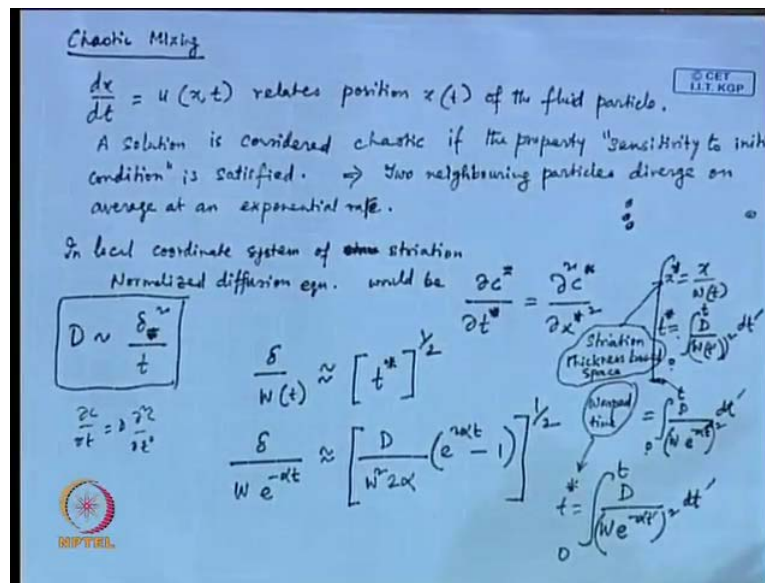 Chaotic Mixing
© CET
I.I.T. KGP
dx/dt = u(x,t) relates position x(t) of the fluid particle.
A solution is considered chaotic if the property "sensitivity to initi
condition" is satisfied. ⇒ Two neighbouring particles diverge on
average at an exponential rate.
In local coordinate system of striation
Normalized diffusion eqn. would be ∂c*/∂t* = ∂²c*/∂x*²
x* = x/W(t)
t* = ∫₀ᵗ D/(W(t'))² dt'
Striation
thickness based
space
D ~ δ²/t
δ/W(t) ≈ [t*]^1/2
Warped
time
= ∫₀ᵗ D/(W e^-αt')² dt'
δ/(W e^-αt) ≈ [D/(W² 2α) (e^2αt − 1)]^1/2
t* = ∫₀ᵗ D/(W e^-αt')² dt'
NPTEL